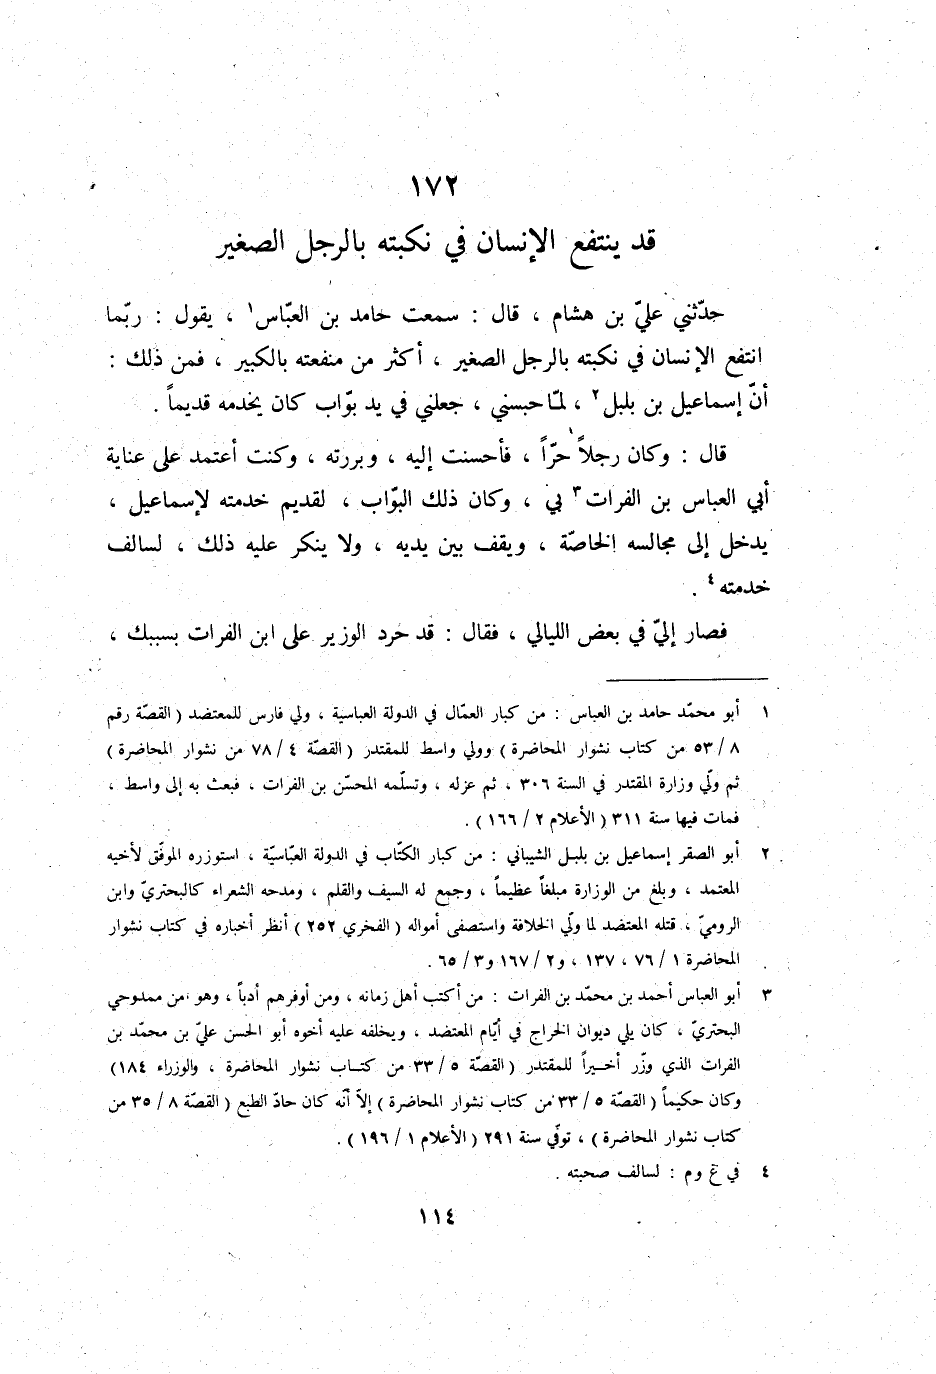 ١٧٢
قد ينتفع الإنسان في نكبته بالرجل الصغير
حدّثني عليّ بن هشام ، قال : سمعت حامد بن العبّاس١ ، يقول : ربّما
انتفع الإنسان في نكبته بالرجل الصغير ، أكثر من منفعته بالكبير ، فمن ذلك :
أنّ إسماعيل بن بلبل٢ ، لمّا حبسني ، جعلني في يد بوّاب كان يخدمه قديماً .
قال : وكان رجلاً حرّاً ، فأحسنت إليه ، وبررته ، وكنت أعتمد على عناية
أبي العباس بن الفرات٣ بي ، وكان ذلك البوّاب ، لقديم خدمته لإسماعيل ،
يدخل إلى مجالسه الخاصّة ، ويقف بين يديه ، ولا ينكر عليه ذلك ، لسالف
خدمته٤ .
فصار إليّ في بعض الليالي ، فقال : قد حرد الوزير على ابن الفرات بسببك ،
١ أبو محمّد حامد بن العباس : من كبار العمّال في الدولة العباسية ، ولي فارس للمعتضد ( القصّة رقم
٨ / ٥٣ من كتاب نشوار المحاضرة ) وولي واسط للمقتدر ( القصّة ٤ / ٧٨ من نشوار المحاضرة )
ثم ولّي وزارة المقتدر في السنة ٣٠٦ ، ثم عزله ، وتسلّمه المحسّن بن الفرات ، فبعث به إلى واسط ،
فمات فيها سنة ٣١١ ( الأعلام ٢ / ١٦٦ ) .
٢ أبو الصقر إسماعيل بن بلبل الشيباني : من كبار الكتّاب في الدولة العبّاسيّة ، استوزره الموفّق لأخيه
المعتمد ، وبلغ من الوزارة مبلغاً عظيماً ، وجمع له السيف والقلم ، ومدحه الشعراء كالبحتريّ وابن
الروميّ ، قتله المعتضد لما ولّي الخلافة واستصفى أمواله ( الفخري ٢٥٢ ) أنظر أخباره في كتاب نشوار
المحاضرة ١ / ٧٦ ، ١٣٧ ، و٢ / ١٦٧ و٣ / ٦٥ .
٣ أبو العباس أحمد بن محمّد بن الفرات : من أكتب أهل زمانه ، ومن أوفرهم أدباً ، وهو من ممدوحي
البحتريّ ، كان يلي ديوان الخراج في أيّام المعتضد ، ويخلفه عليه أخوه أبو الحسن عليّ بن محمّد بن
الفرات الذي وزّر أخيراً للمقتدر ( القصّة ٥ / ٣٣ من كتاب نشوار المحاضرة ، والوزراء ١٨٤ )
وكان حكيماً ( القصّة ٥ / ٣٣ من كتاب نشوار المحاضرة ) إلاّ أنّه كان حادّ الطبع ( القصّة ٨ / ٣٥ من
كتاب نشوار المحاضرة ) ، توفّي سنة ٢٩١ ( الأعلام ١ / ١٩٦ ) .
٤ في غ وم : لسالف صحبته .
١١٤